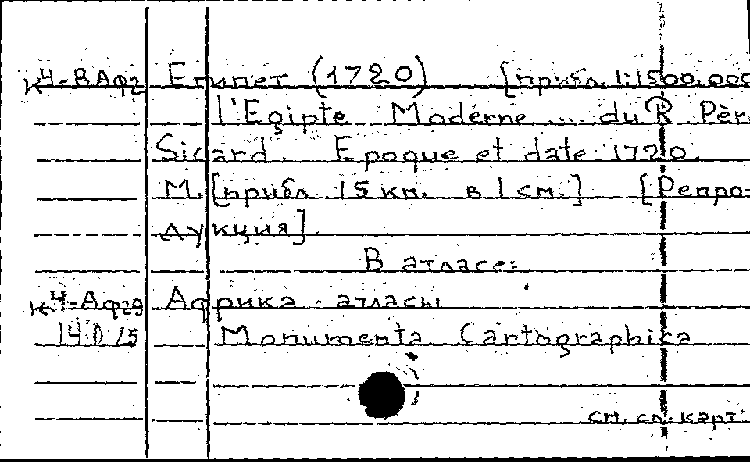 К4-ВАф2 Египет (1720) [прибл. 1:1500.000
l'Egipte Moderne ... du R Pèr
Sicard. Epoque et date 1720.
М. [прибл 15 км. в 1 см.] [Репро-
дукция].
В атласе:
К4-Аф29 Африка - атласы
140/5 Monumenta Cartographica
см. сл. карт